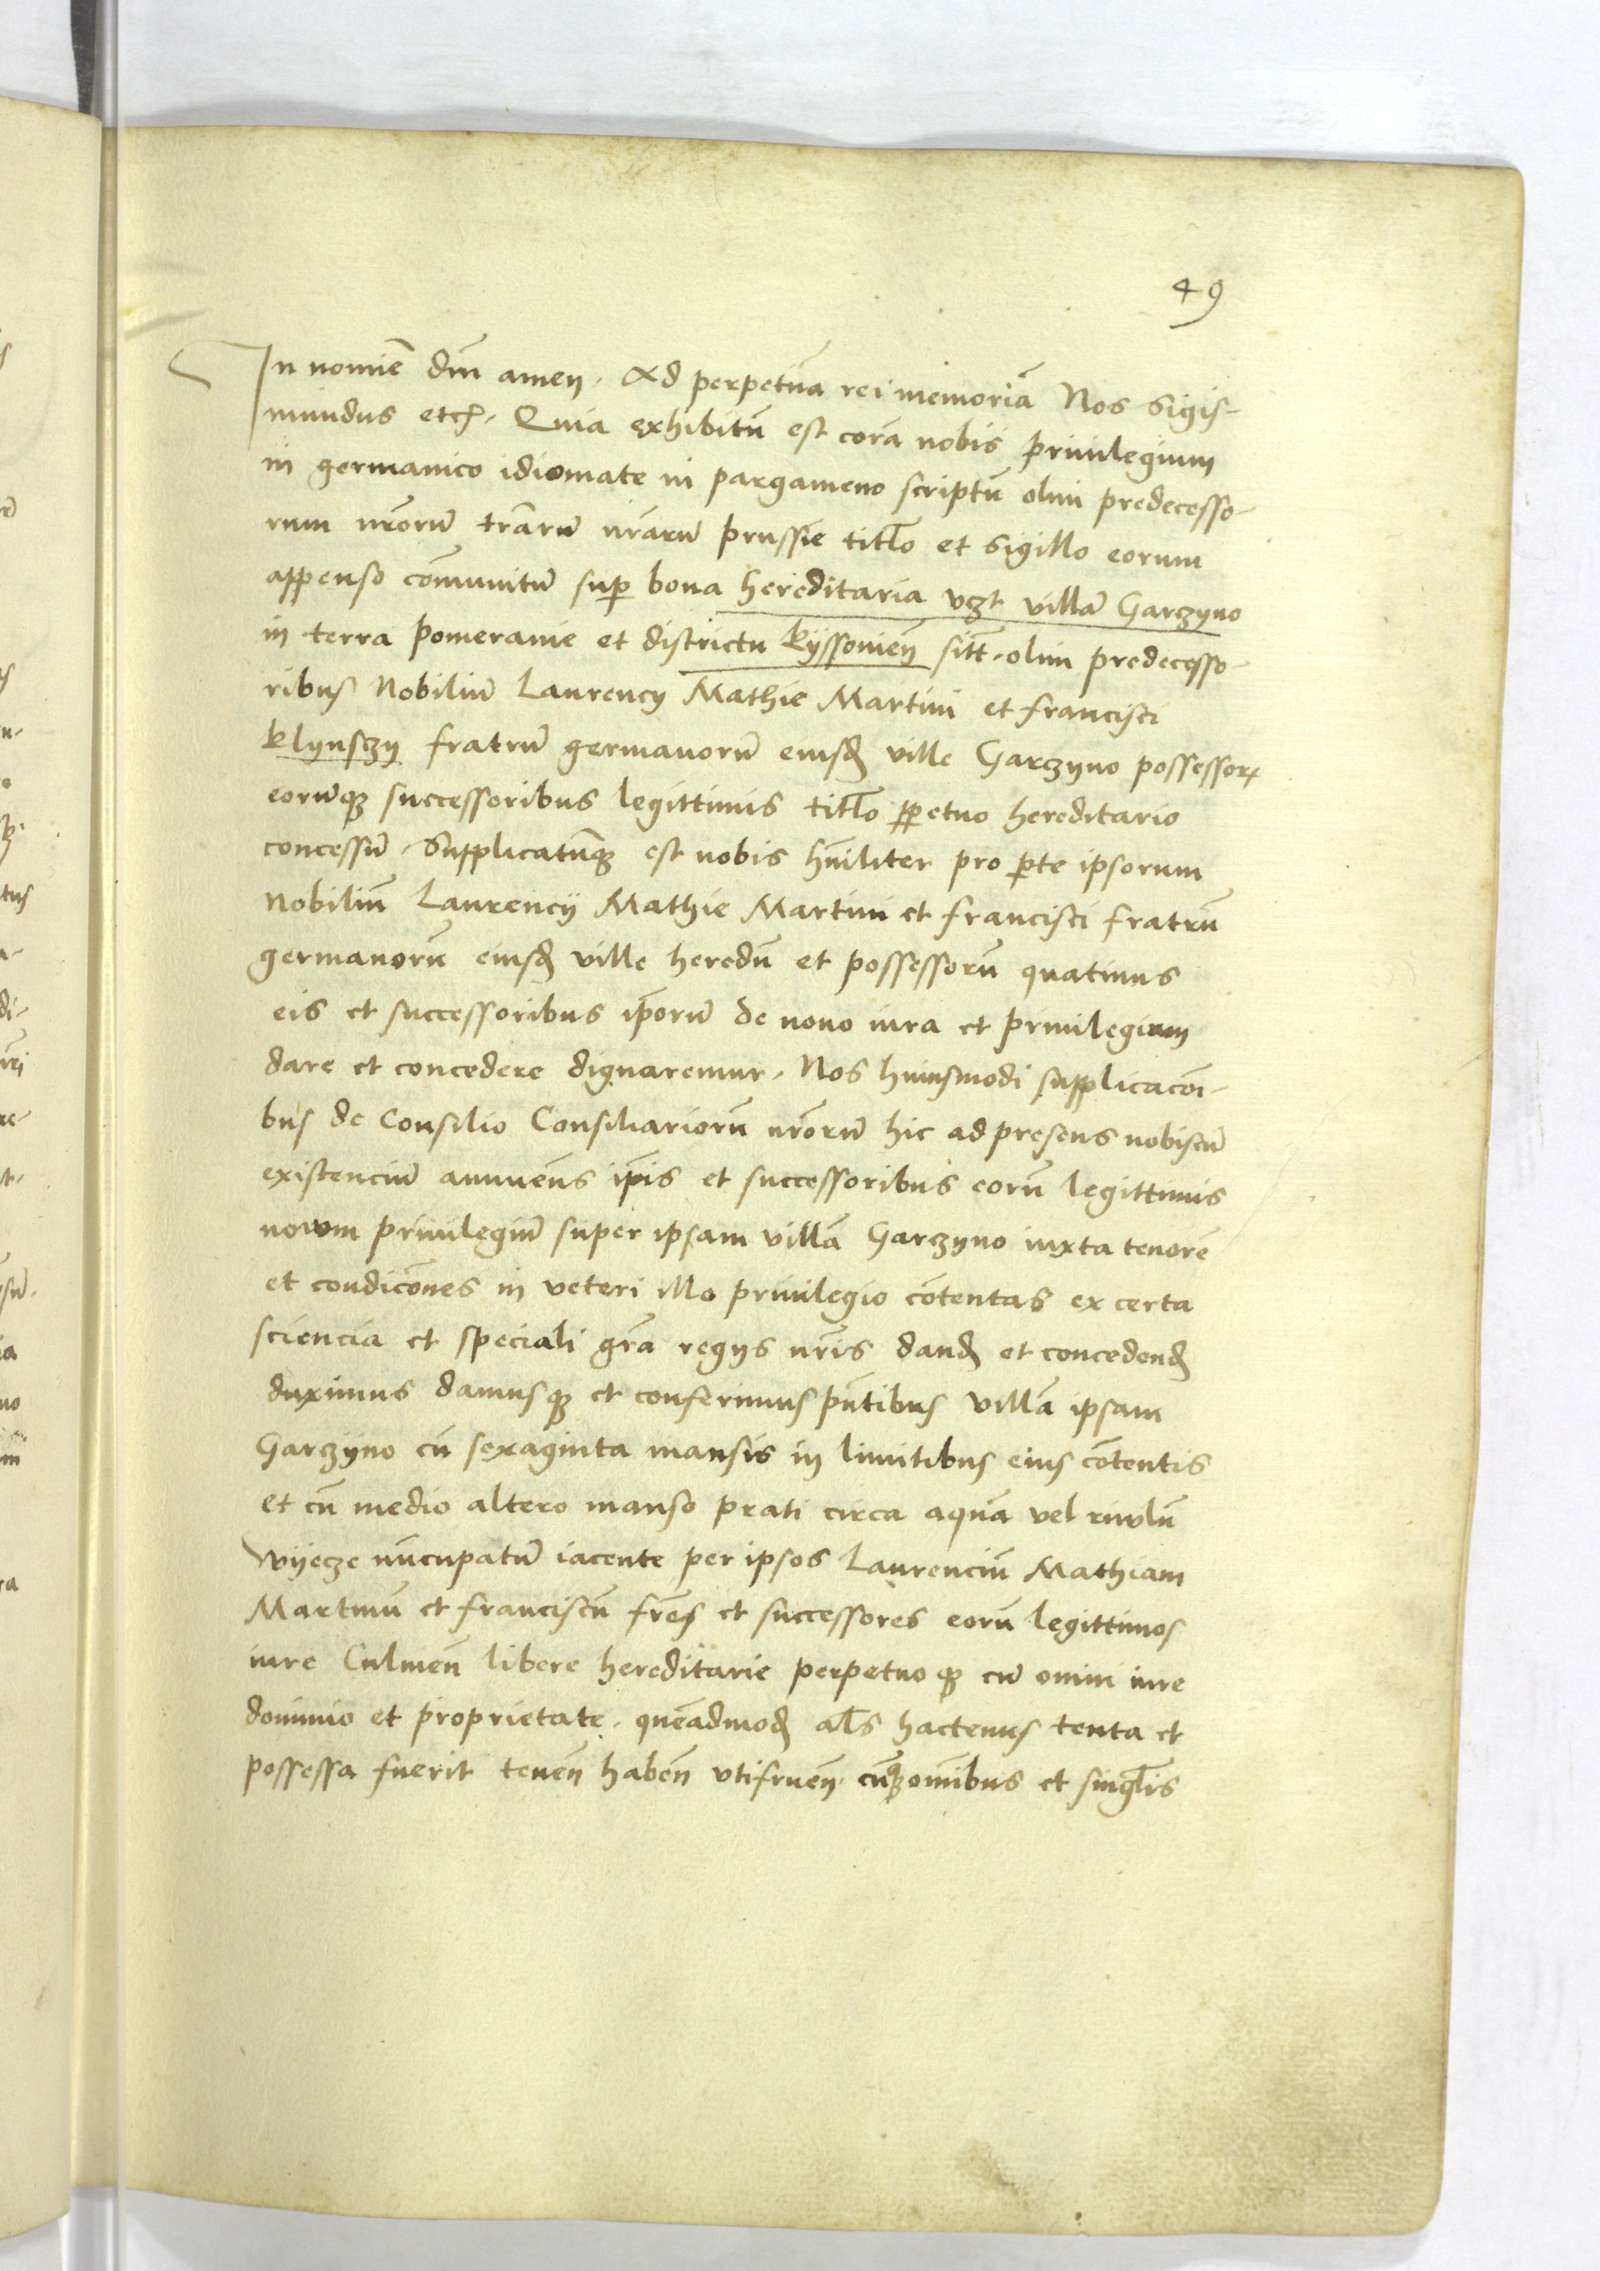 49
In nomīe dm̄ amen. Ad perpetuā rei memoriā Nos Sigis-
mundus etc. Quia exhibitū est corā nobis priuilegium
in germanico idiomate in pargameno scriptū olim predecesso-
rum nr̄orū trārū nr̄arū prussie titl̄o et sigillo eorum
appenso cōmunitū sup bona hereditaria vꝫt villā Garczyno
in terra pomeranie et districtu kyssonień sitī. olim predecesso-
ribus Nobiliū Laurencij Mathie Martini et francisci
klynsczy fratrū germanorū eiusd ville Garczyno possessorꝝ
eorūqꝫ successoribus legittimis titl̄o ꝑpetuo hereditario
concessū. Supplicatūqꝫ est nobis hūiliter pro pte ipsorum
Nobiliū Laurencij Mathie Martini et francisci fratrū
germanorū eiusd ville heredū et possessorū quatinus
eis et successoribus ip̄orū de nouo iura et priuilegium
dare et concedere dignaremur. Nos huiusmodi supplicacōi-
bus de Consilio Consiliariorū nr̄orū hic ad presens nobiscū
existenciū annuēns ip̄is et successoribus eorū legittimis
nouum priuilegiū super ipsam villā Garczyno iuxta tenorē
et condicōnes in veteri illo priuilegio cōtentas ex certa
sciencia et speciali grā regijs nr̄is dand et concedend
duximus damusqꝫ et conferimus pn̄tibus villā ipsam
Garczyno cū sexaginta mansis in limitibus eius cōtentis
et cū medio altero manso prati circa aquā vel riuulū
Wyecze nūcupatū iacente per ipsos Laurenciū Mathiam
Martinū et franciscū frēs et successores eorū legittimos
iure Culmeń libere hereditarie perpetuoqꝫ cū omni iure
dominio et proprietate. quēadmod al̄s hactenus tenta et
possessa fuerit teneń habeń vtifrueń. cūqꝫ omībus et singl̄is